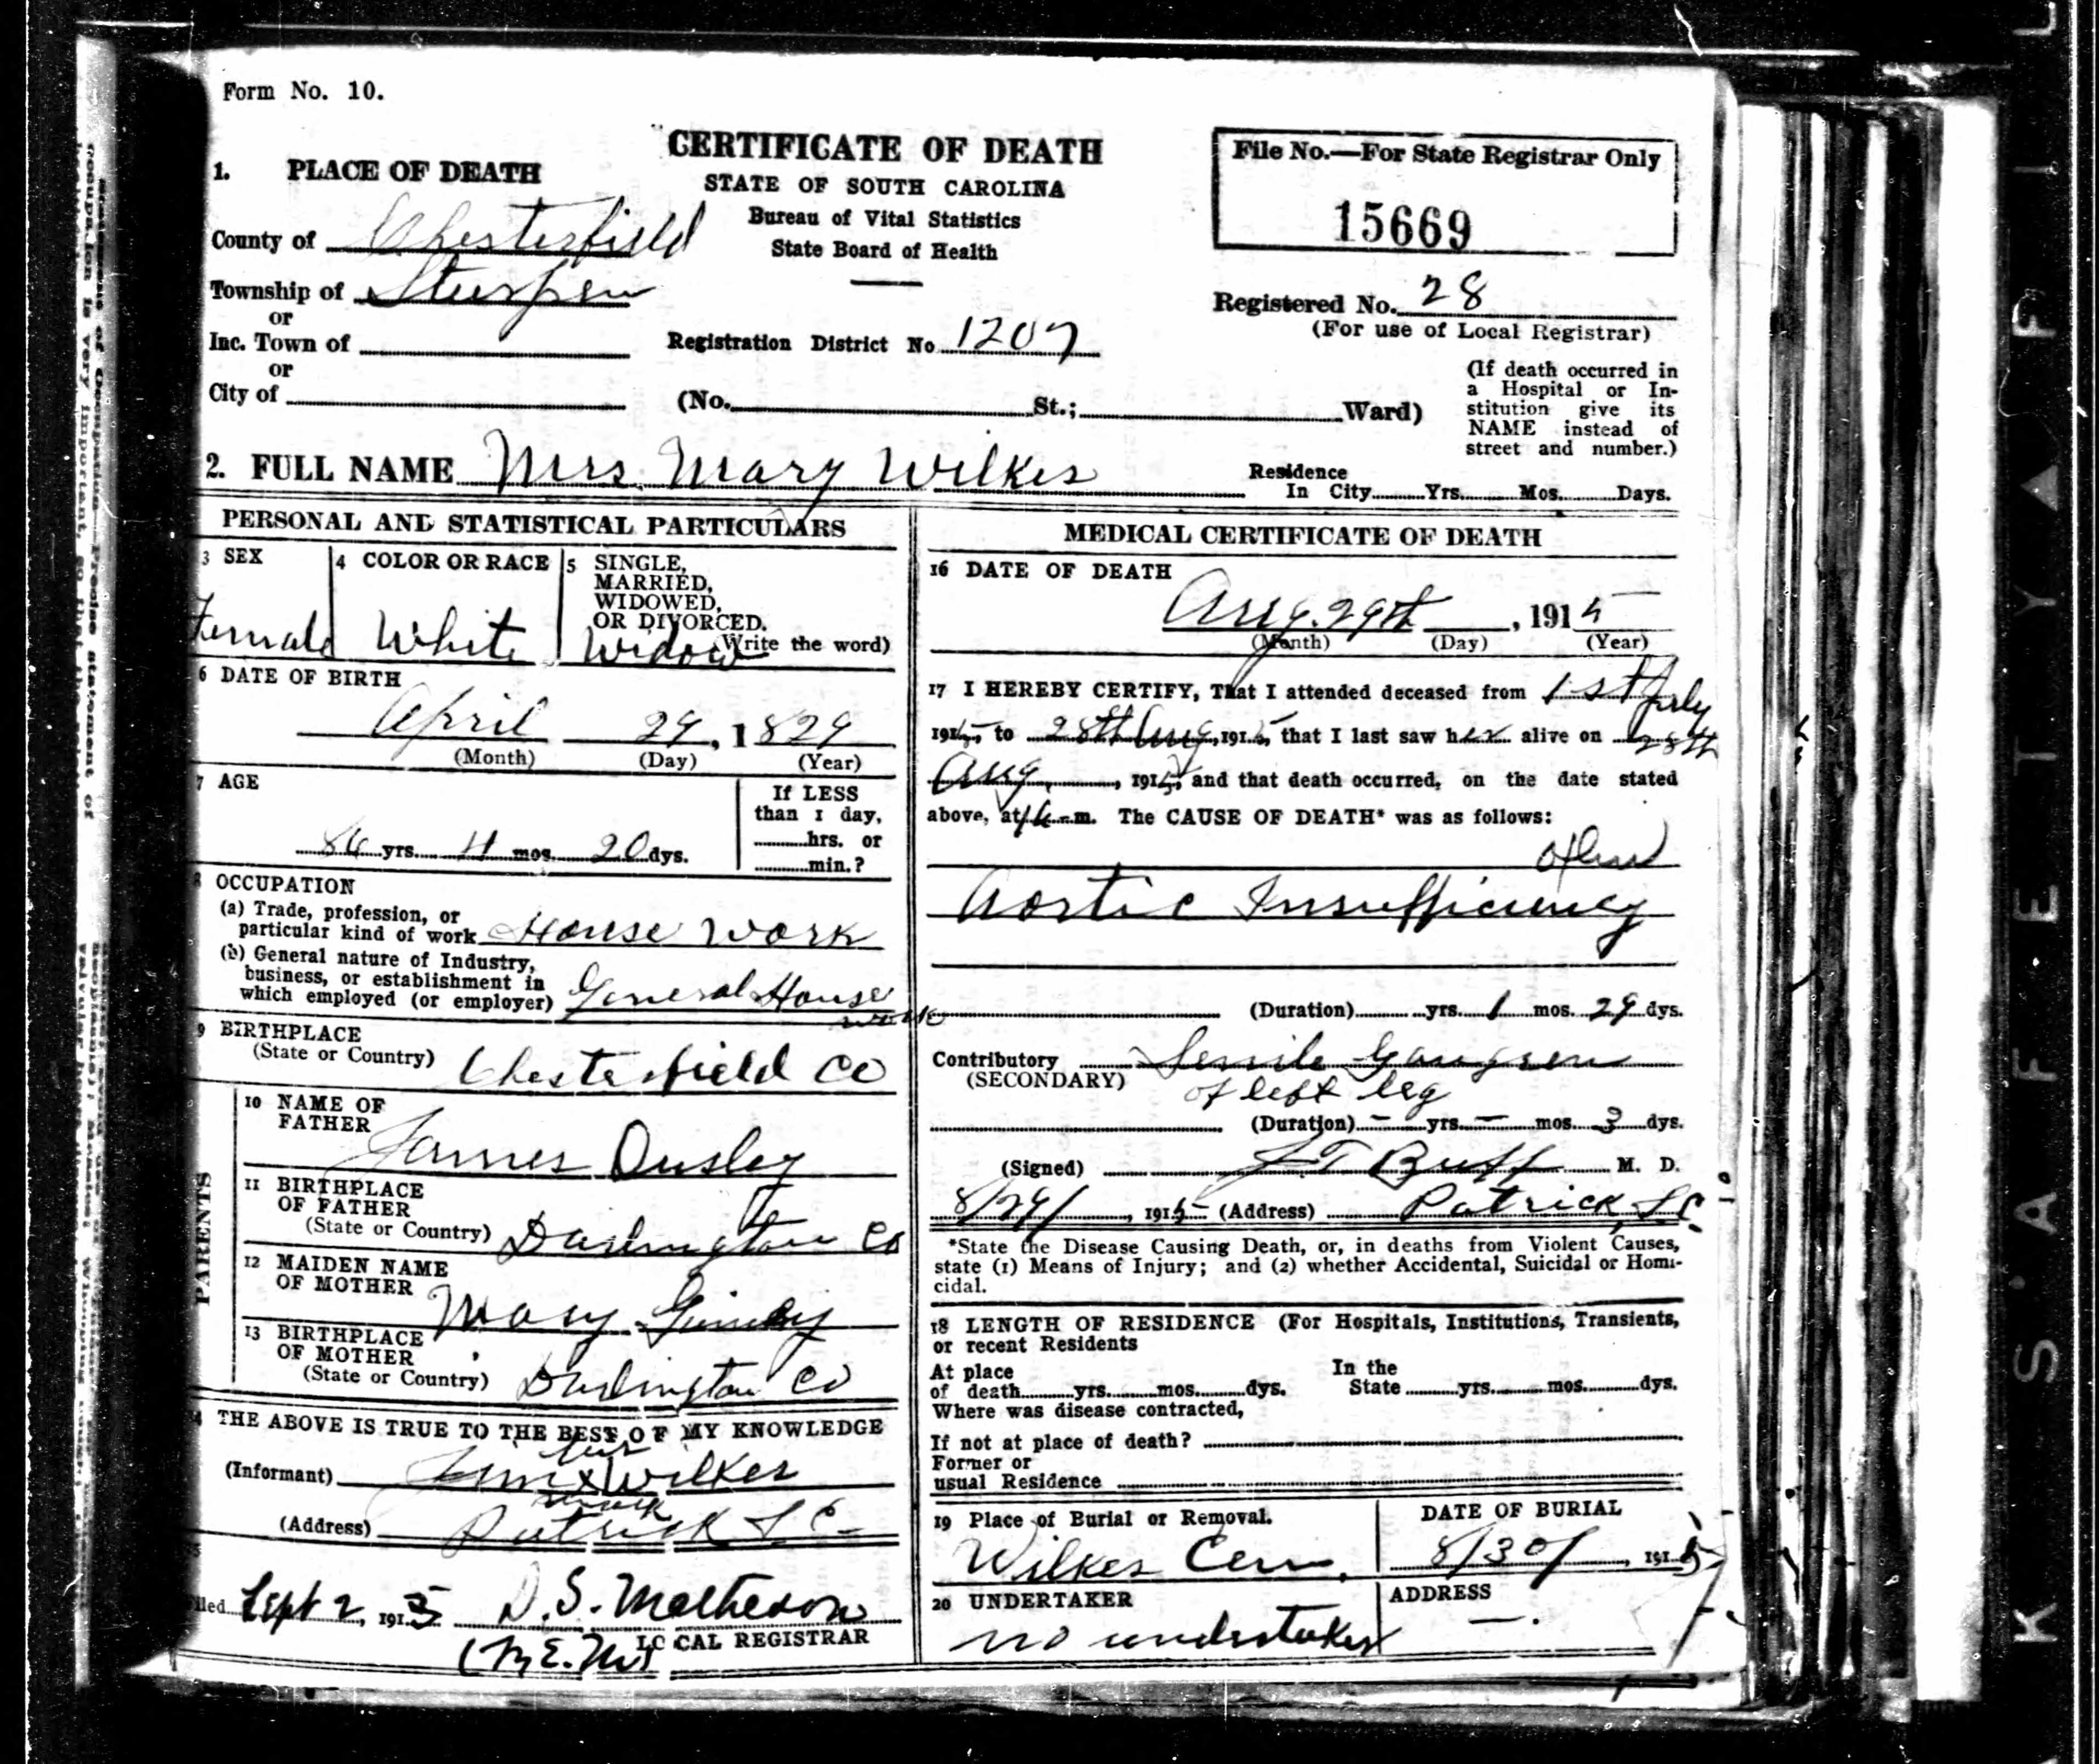 Form No. 10.
CERTIFICATE OF DEATH
STATE OF SOUTH CAROLINA
Bureau of Vital Statistics
State Board of Health
File No.—For State Registrar Only
15669
1. PLACE OF DEATH
County of Chesterfield
Township of
or
Inc. Town of
or
City of
Registration District No 1207
Registered No. 28
(For use of Local Registrar)
(No. St.; Ward)
(If death occurred in
a Hospital or In-
stitution give its
NAME instead of
street and number.)
2. FULL NAME Mrs. Mary Wilkes
Residence
In City Yrs. Mos. Days.
PERSONAL AND STATISTICAL PARTICULARS
3 SEX
Female
4 COLOR OR RACE
White
5 SINGLE,
MARRIED,
WIDOWED,
OR DIVORCED.
Widow (Write the word)
6 DATE OF BIRTH
April 29, 1829
(Month) (Day) (Year)
7 AGE
86 yrs. 4 mos. 20 dys.
If LESS
than 1 day,
hrs. or
min.?
8 OCCUPATION
(a) Trade, profession, or
particular kind of work House work
(b) General nature of Industry,
business, or establishment in
which employed (or employer) General House
work
9 BIRTHPLACE
(State or Country) Chesterfield Co
PARENTS
10 NAME OF
FATHER
James Ousley
11 BIRTHPLACE
OF FATHER
(State or Country) Darlington Co
12 MAIDEN NAME
OF MOTHER
Mary
13 BIRTHPLACE
OF MOTHER
(State or Country) Darlington Co
14 THE ABOVE IS TRUE TO THE BEST OF MY KNOWLEDGE
(Informant) Wilkes
mark
(Address) Patrick S C
Filed Sept 2, 1915 D. S. Matheson
LOCAL REGISTRAR
MEDICAL CERTIFICATE OF DEATH
16 DATE OF DEATH
Aug. 29th, 1915
(Month) (Day) (Year)
17 I HEREBY CERTIFY, That I attended deceased from 1st July
1915, to 28th Aug, 1915, that I last saw her alive on 28th
Aug, 1915, and that death occurred, on the date stated
above, at m. The CAUSE OF DEATH* was as follows:
Aortic Insufficiency
(Duration) yrs. 1 mos. 29 dys.
Contributory Senile Gangren
(SECONDARY) of left leg
(Duration) - yrs. - mos. 3 dys.
(Signed) Buff M. D.
8/29/, 1915 (Address) Patrick, S.C.
*State the Disease Causing Death, or, in deaths from Violent Causes,
state (1) Means of Injury; and (2) whether Accidental, Suicidal or Homi-
cidal.
18 LENGTH OF RESIDENCE (For Hospitals, Institutions, Transients,
or recent Residents
At place
of death yrs. mos. dys.
In the
State yrs. mos. dys.
Where was disease contracted,
If not at place of death?
Former or
usual Residence
19 Place of Burial or Removal.
Wilkes Cem.
DATE OF BURIAL
8/30/, 1915
20 UNDERTAKER
no undertaker
ADDRESS
—.
S'AFETY